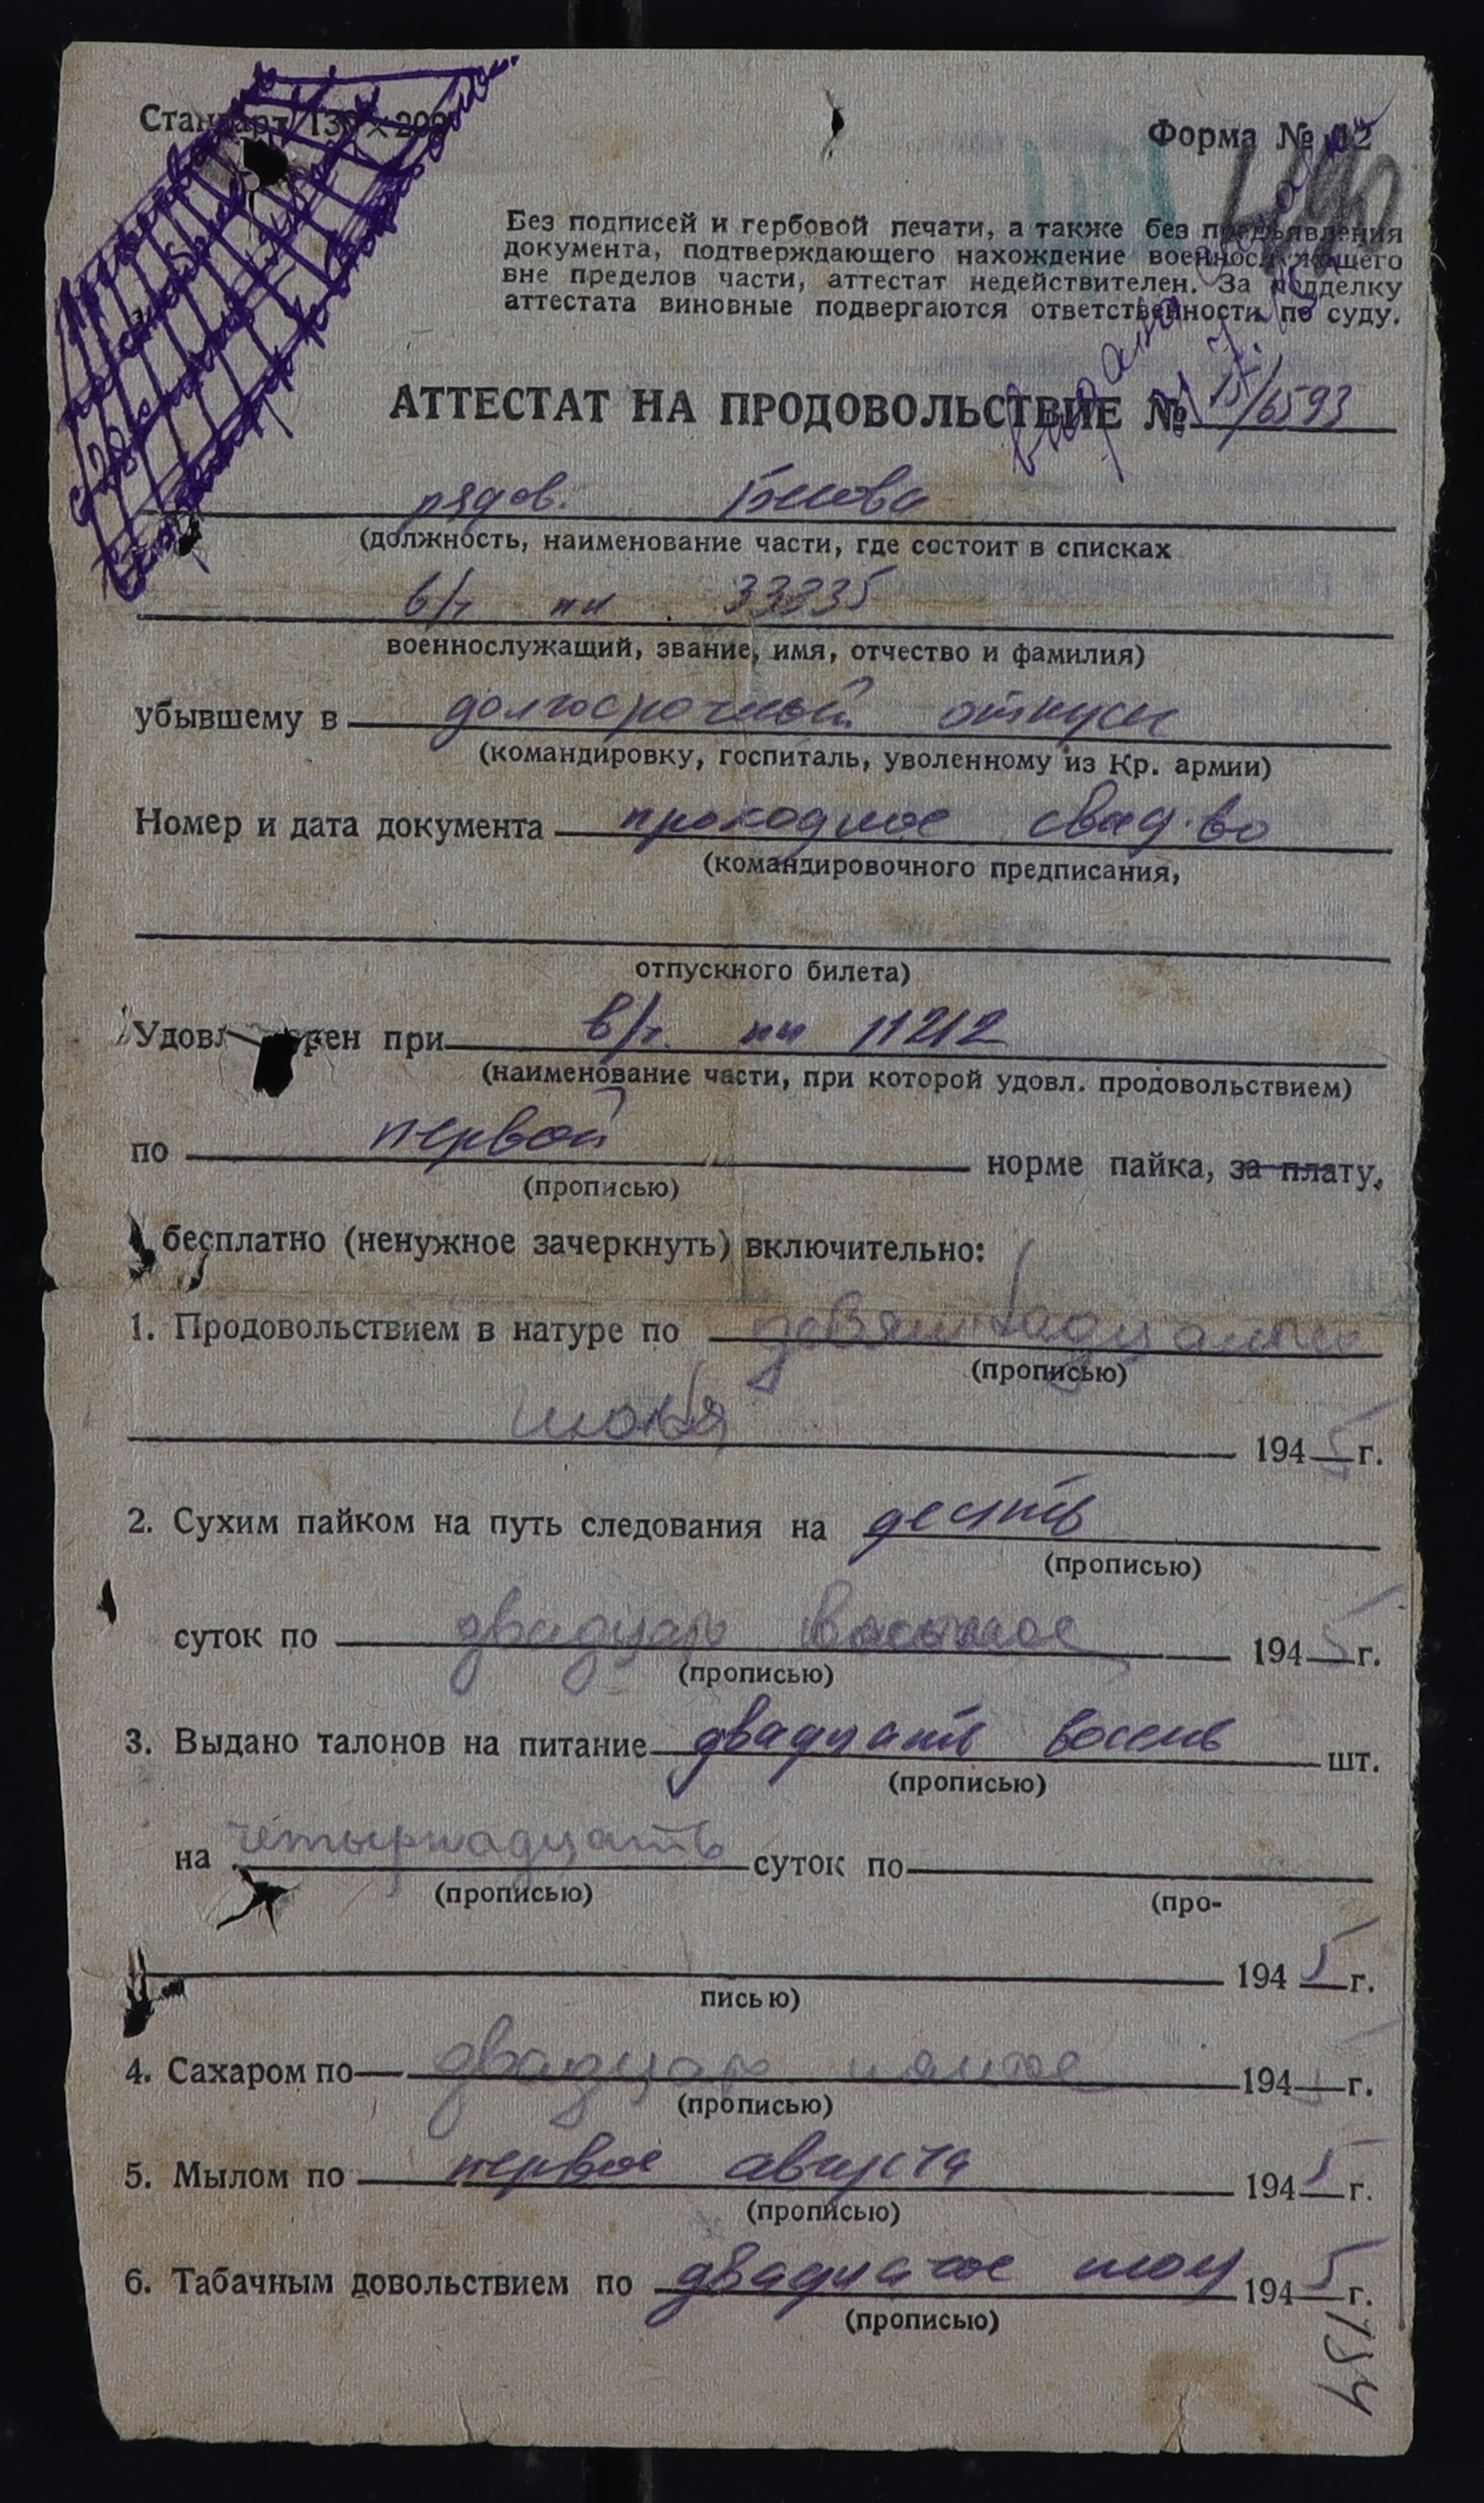 Стандарт 130×200
Форма № 12
490
Без подписей и гербовой печати, а также без предъявления
документа, подтверждающего нахождение военнослужащего
вне пределов части, аттестат недействителен. За подделку
аттестата виновные подвергаются ответственности по суду.
АТТЕСТАТ НА ПРОДОВОЛЬСТВИЕ № 15/6593
рядов.
(должность, наименование части, где состоит в списках
в/ч пп 33835
военнослужащий, звание, имя, отчество и фамилия)
убывшему в долгосрочный отпуск
(командировку, госпиталь, уволенному из Кр. армии)
Номер и дата документа проходное свид-во
(командировочного предписания,
отпускного билета)
Удовлетворен при в/ч пп 11212
(наименование части, при которой удовл. продовольствием)
по первой норме пайка, за плату,
(прописью)
бесплатно (ненужное зачеркнуть) включительно:
1. Продовольствием в натуре по девятнадцатое
(прописью)
194 5 г.
2. Сухим пайком на путь следования на десять
(прописью)
суток по двадцать восьмое 194 5 г.
(прописью)
3. Выдано талонов на питание двадцать восемь шт.
(прописью)
на четырнадцать суток по
(прописью) (про-
194 5 г.
писью)
4. Сахаром по двадцать пятое 194 5 г.
(прописью)
5. Мылом по первое августа 194 5 г.
(прописью)
6. Табачным довольствием по двадцатое июл 194 5 г.
(прописью)